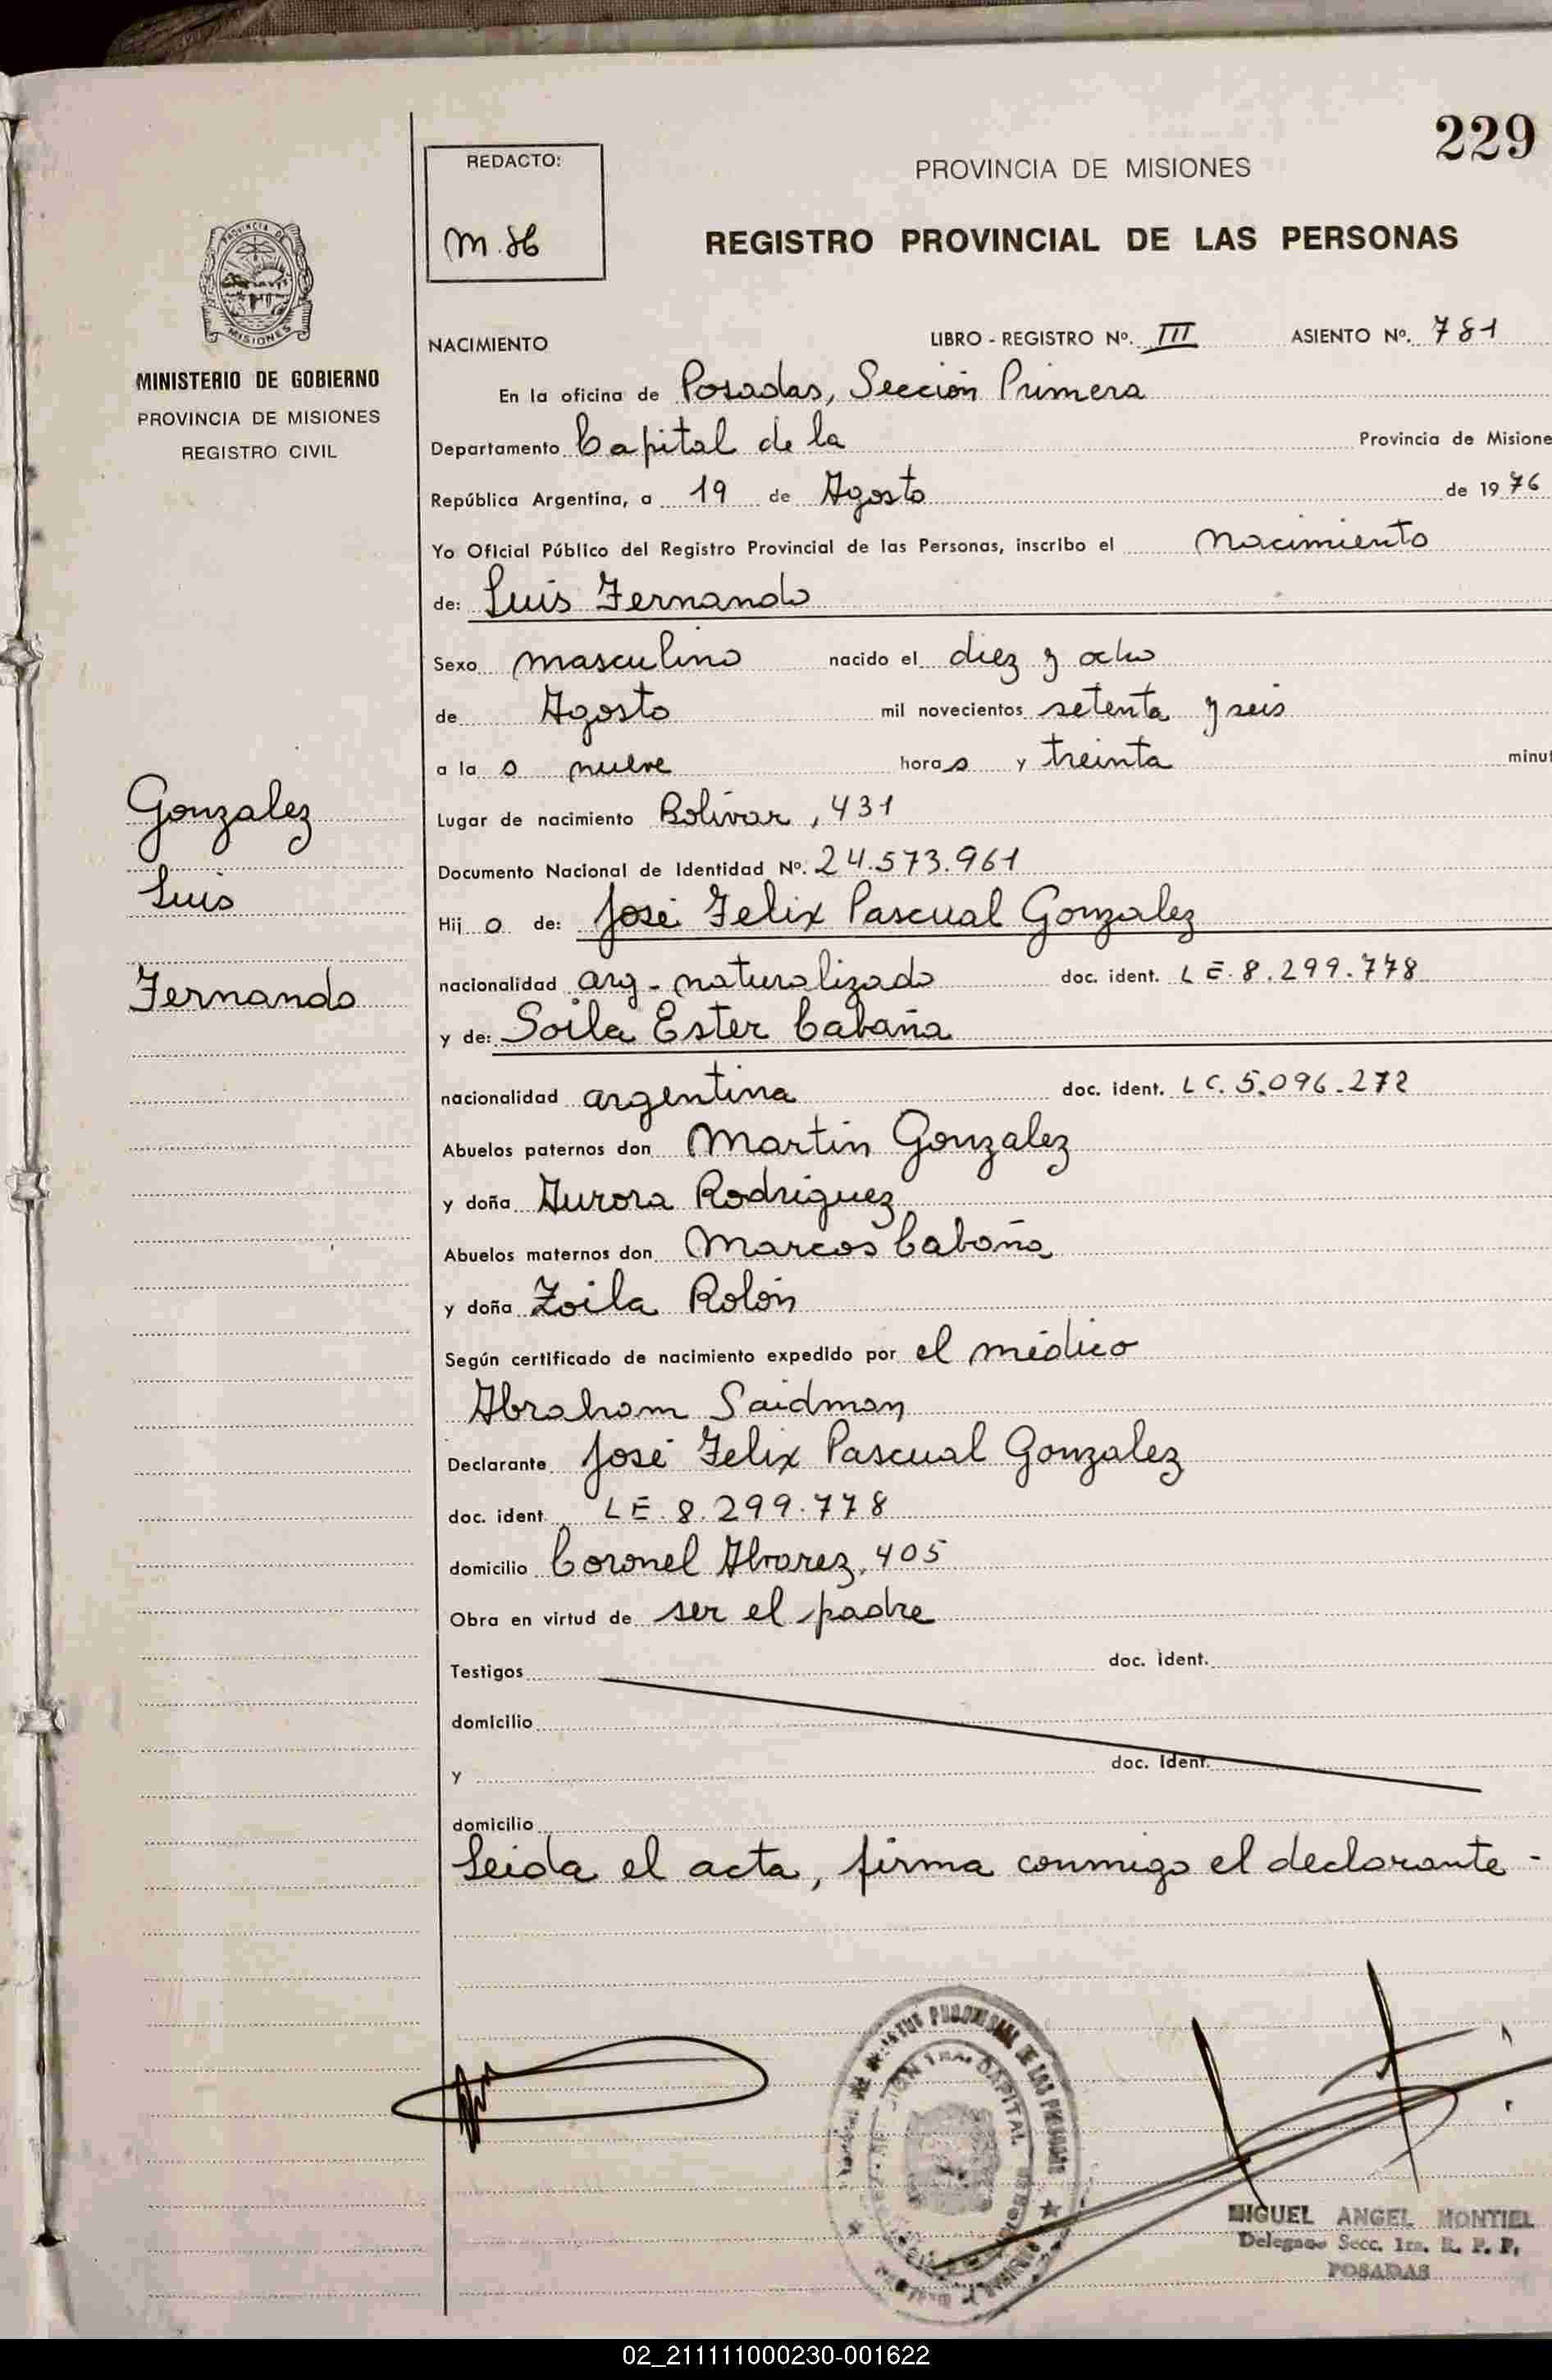 229
REDACTO:
PROVINCIA DE MISIONES
REGISTRO PROVINCIAL DE LAS PERSONAS
MINISTERIO DE GOBIERNO
PROVINCIA DE MISIONES
REGISTRO CIVIL
NACIMIENTO LIBRO - REGISTRO Nº. III ASIENTO Nº. 781
En la oficina de Posadas, Sección Primera
Departamento Capital de la Provincia de Misione
República Argentina, a 19 de Agosto de 1976
Yo Oficial Público del Registro Provincial de las Personas, inscribo el Nacimiento
de: Luis Fernando
Sexo masculino nacido el diez y ocho
de Agosto mil novecientos setenta y seis
a la s nueve horas y treinta minut
Gonzalez
Luis
Fernando
Lugar de nacimiento Bolívar, 431
Documento Nacional de Identidad Nº. 24.573.961
Hij o de: José Felix Pascual Gonzalez
nacionalidad arg - naturalizado doc. ident. L E. 8.299.778
y de: Soila Ester Cabaña
nacionalidad argentina doc. ident. L C. 5.096.272
Abuelos paternos don Martín Gonzalez
y doña Aurora Rodriguez
Abuelos maternos don Marcos Cabaña
y doña Zoila Rolón
Según certificado de nacimiento expedido por el médico
Abraham Saidman
Declarante José Felix Pascual Gonzalez
doc. ident. L E. 8.299.778
domicilio Coronel Alvarez, 405
Obra en virtud de ser el padre
Testigos doc. ident.
domicilio
y doc. ident.
domicilio
Leida el acta, firma conmigo el declarante -
MIGUEL ANGEL MONTIEL
Delegado Secc. 1ra. R. P. P.
POSADAS
02_211111000230-001622